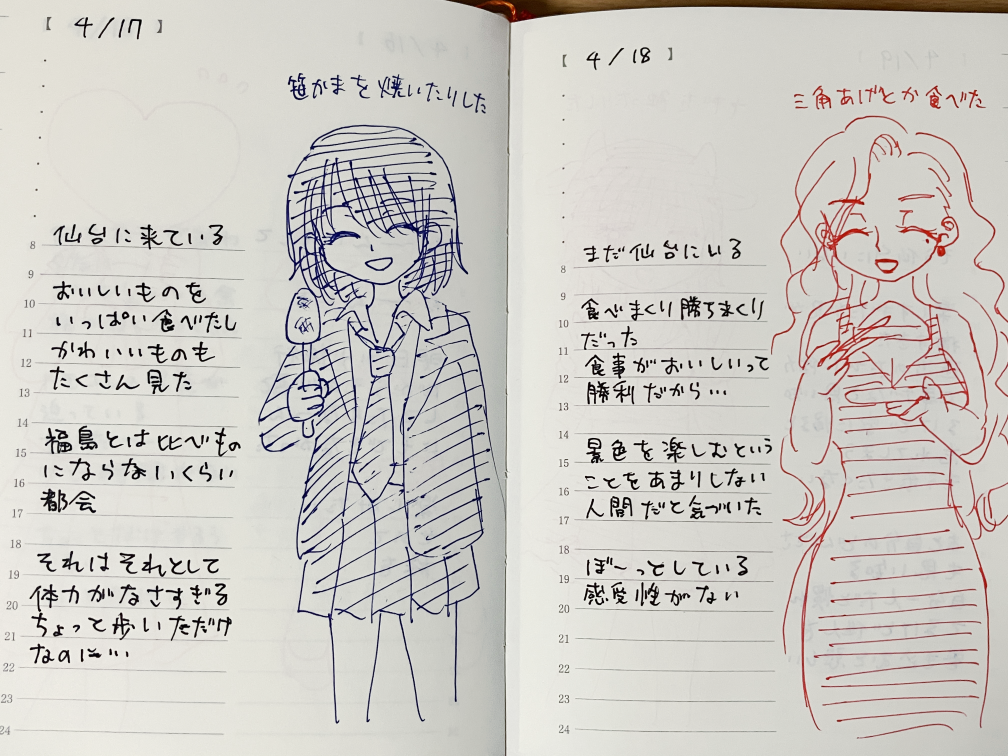 【 4/17 】
笹かまを焼いたりした
8
仙台に来ている
9
おいしいものを
10
いっぱい食べたし
11
かわいいものも
12
たくさん見た
13
14
福島とは比べもの
15
にならないくらい
16
都会
17
18
それはそれとして
19
体力がなさすぎる
20
ちょっと歩いただけ
21
なのに…
22
23
24
【 4/18 】
三角あげとか食べた
まだ仙台にいる
8
9
食べまくり勝ちまくり
10
だった
11
食事がおいしいって
12
勝利だから…
13
14
景色を楽しむという
15
ことをあまりしない
16
人間だと気づいた
17
18
ぼーっとしている
19
感受性がない
20
21
22
23
24